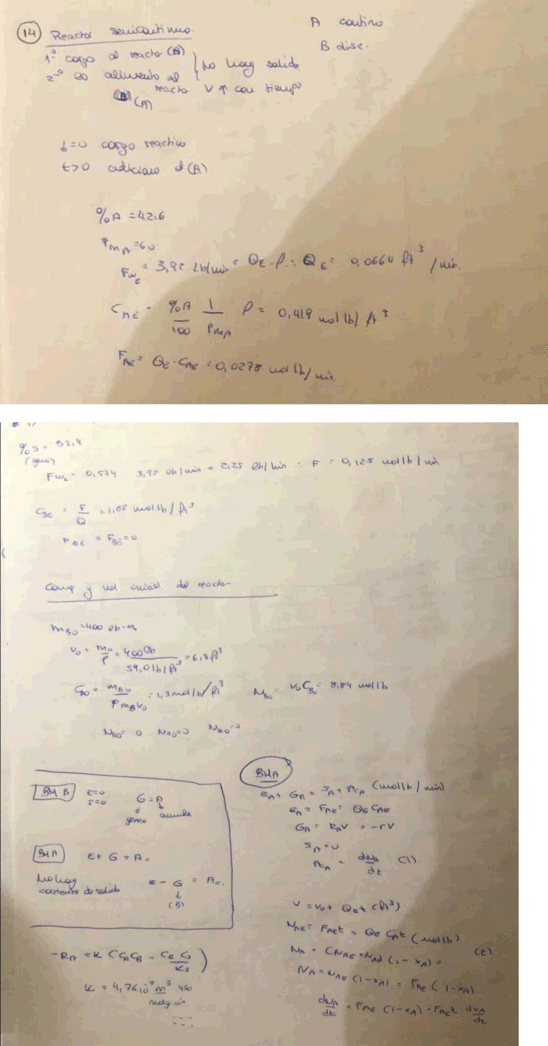 14 Reactor semicontinuo
A continuo
B disc.
1º cargo al reactor (B)
2º alimento al reactor (A)
No hay salida
V ↑ con tiempo
t=0 cargo reactivo
t>0 adiciono (A)
%A = 42,6
PmA = 60
FwE = 3,92 lb/min = QE·ρ ∴ QE = 0,0664 ft³/min
CAE = %A/100 1/PmA ρ = 0,419 mol lb/ft³
FAE = QE·CAE = 0,0278 mol lb/min
%S = 57,4
FwS = 0,574 3,92 lb/min = 2,25 lb/min ∴ F = 0,125 mol lb/min
CSE = F/Q = 1,88 mol lb/ft³
FBE = 0
Comp y vol inicial del reactor
mBO = 400 lb
V0 = m0/ρ = 400 lb/59,0 lb/ft³ = 6,8 ft³
CBO = mBO/PmB V0 = 1,3 mol lb/ft³ NBO = V0 CBO = 8,84 mol lb
NAO = 0
BMB E=0
S=0 G = A
BMA E + G = Ac
No hay corriente de salida E - G = Ac
(B)
-RA = K (CA CB - CE CS/KS)
K = 4,76 10⁻⁴ m³
BMA
EA + GA = SA + AcA (mol lb/min)
EA = FAE = QE CAE
GA = RAV = -rV
SA = 0
AcA = dNA/dt (1)
V = V0 + QEt (ft³)
NAE = FAEt = QE CAEt (mol lb)
NA = (NAE + NAO) (1-XA) = (2)
NA = NAE (1-XA) = FAE (1-XA)
dNA/dt = FAE (1-XA) - FAEt dXA/dt